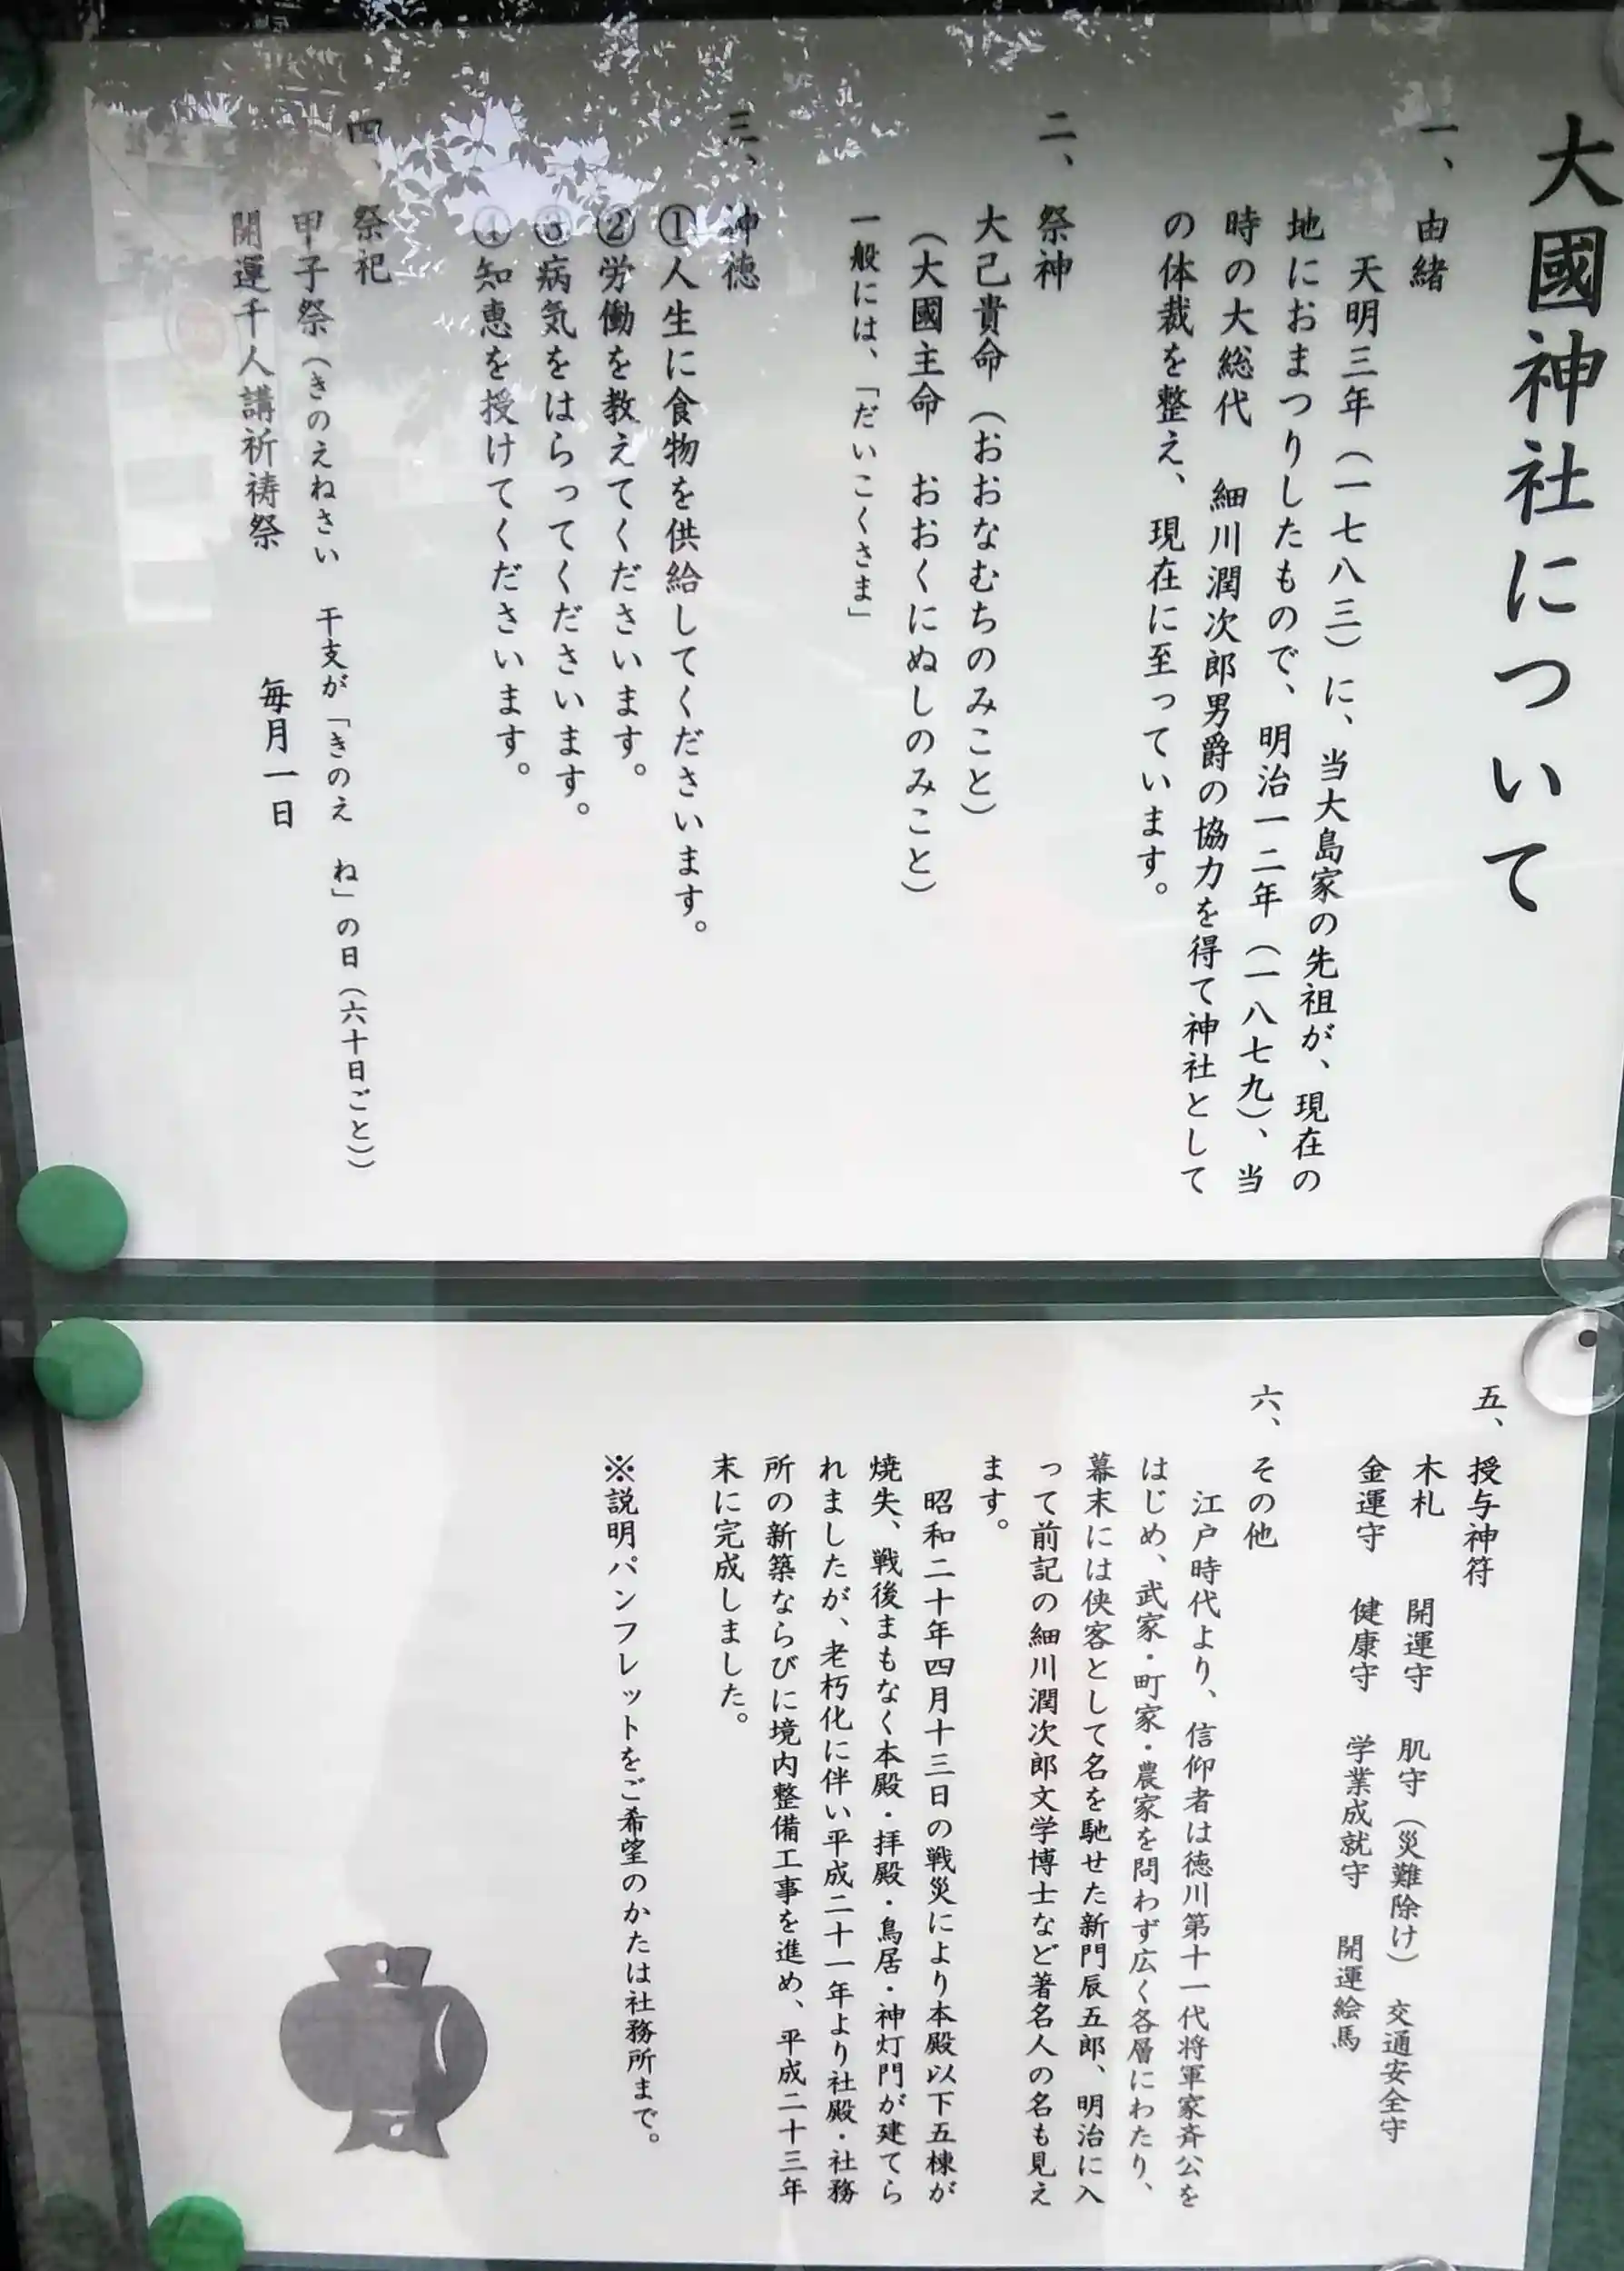 大國神社について
一、由緒
天明三年(一七八三)に、当大島家の先祖が、現在の
地におまつりしたもので、明治一二年(一八七九)、当
時の大総代　細川潤次郎男爵の協力を得て神社として
の体裁を整え、現在に至っています。
二、祭神
大己貴命(おおなむちのみこと)
(大國主命　おおくにぬしのみこと)
一般には、「だいこくさま」
三、神徳
①人生に食物を供給してくださいます。
②労働を教えてくださいます。
③病気をはらってくださいます。
④知恵を授けてくださいます。
四、祭祀
甲子祭(きのえねさい　干支が「きのえ　ね」の日(六十日ごと))
開運千人講祈祷祭　毎月一日
五、授与神符
木札　開運守　肌守(災難除け)　交通安全守
金運守　健康守　学業成就守　開運絵馬
六、その他
江戸時代より、信仰者は徳川第十一代将軍家斉公を
はじめ、武家・町家・農家を問わず広く各層にわたり、
幕末には侠客として名を馳せた新門辰五郎、明治に入
って前記の細川潤次郎文学博士など著名人の名も見え
ます。
昭和二十年四月十三日の戦災により本殿以下五棟が
焼失、戦後まもなく本殿・拝殿・鳥居・神灯門が建てら
れましたが、老朽化に伴い平成二十一年より社殿・社務
所の新築ならびに境内整備工事を進め、平成二十三年
末に完成しました。
※説明パンフレットをご希望のかたは社務所まで。